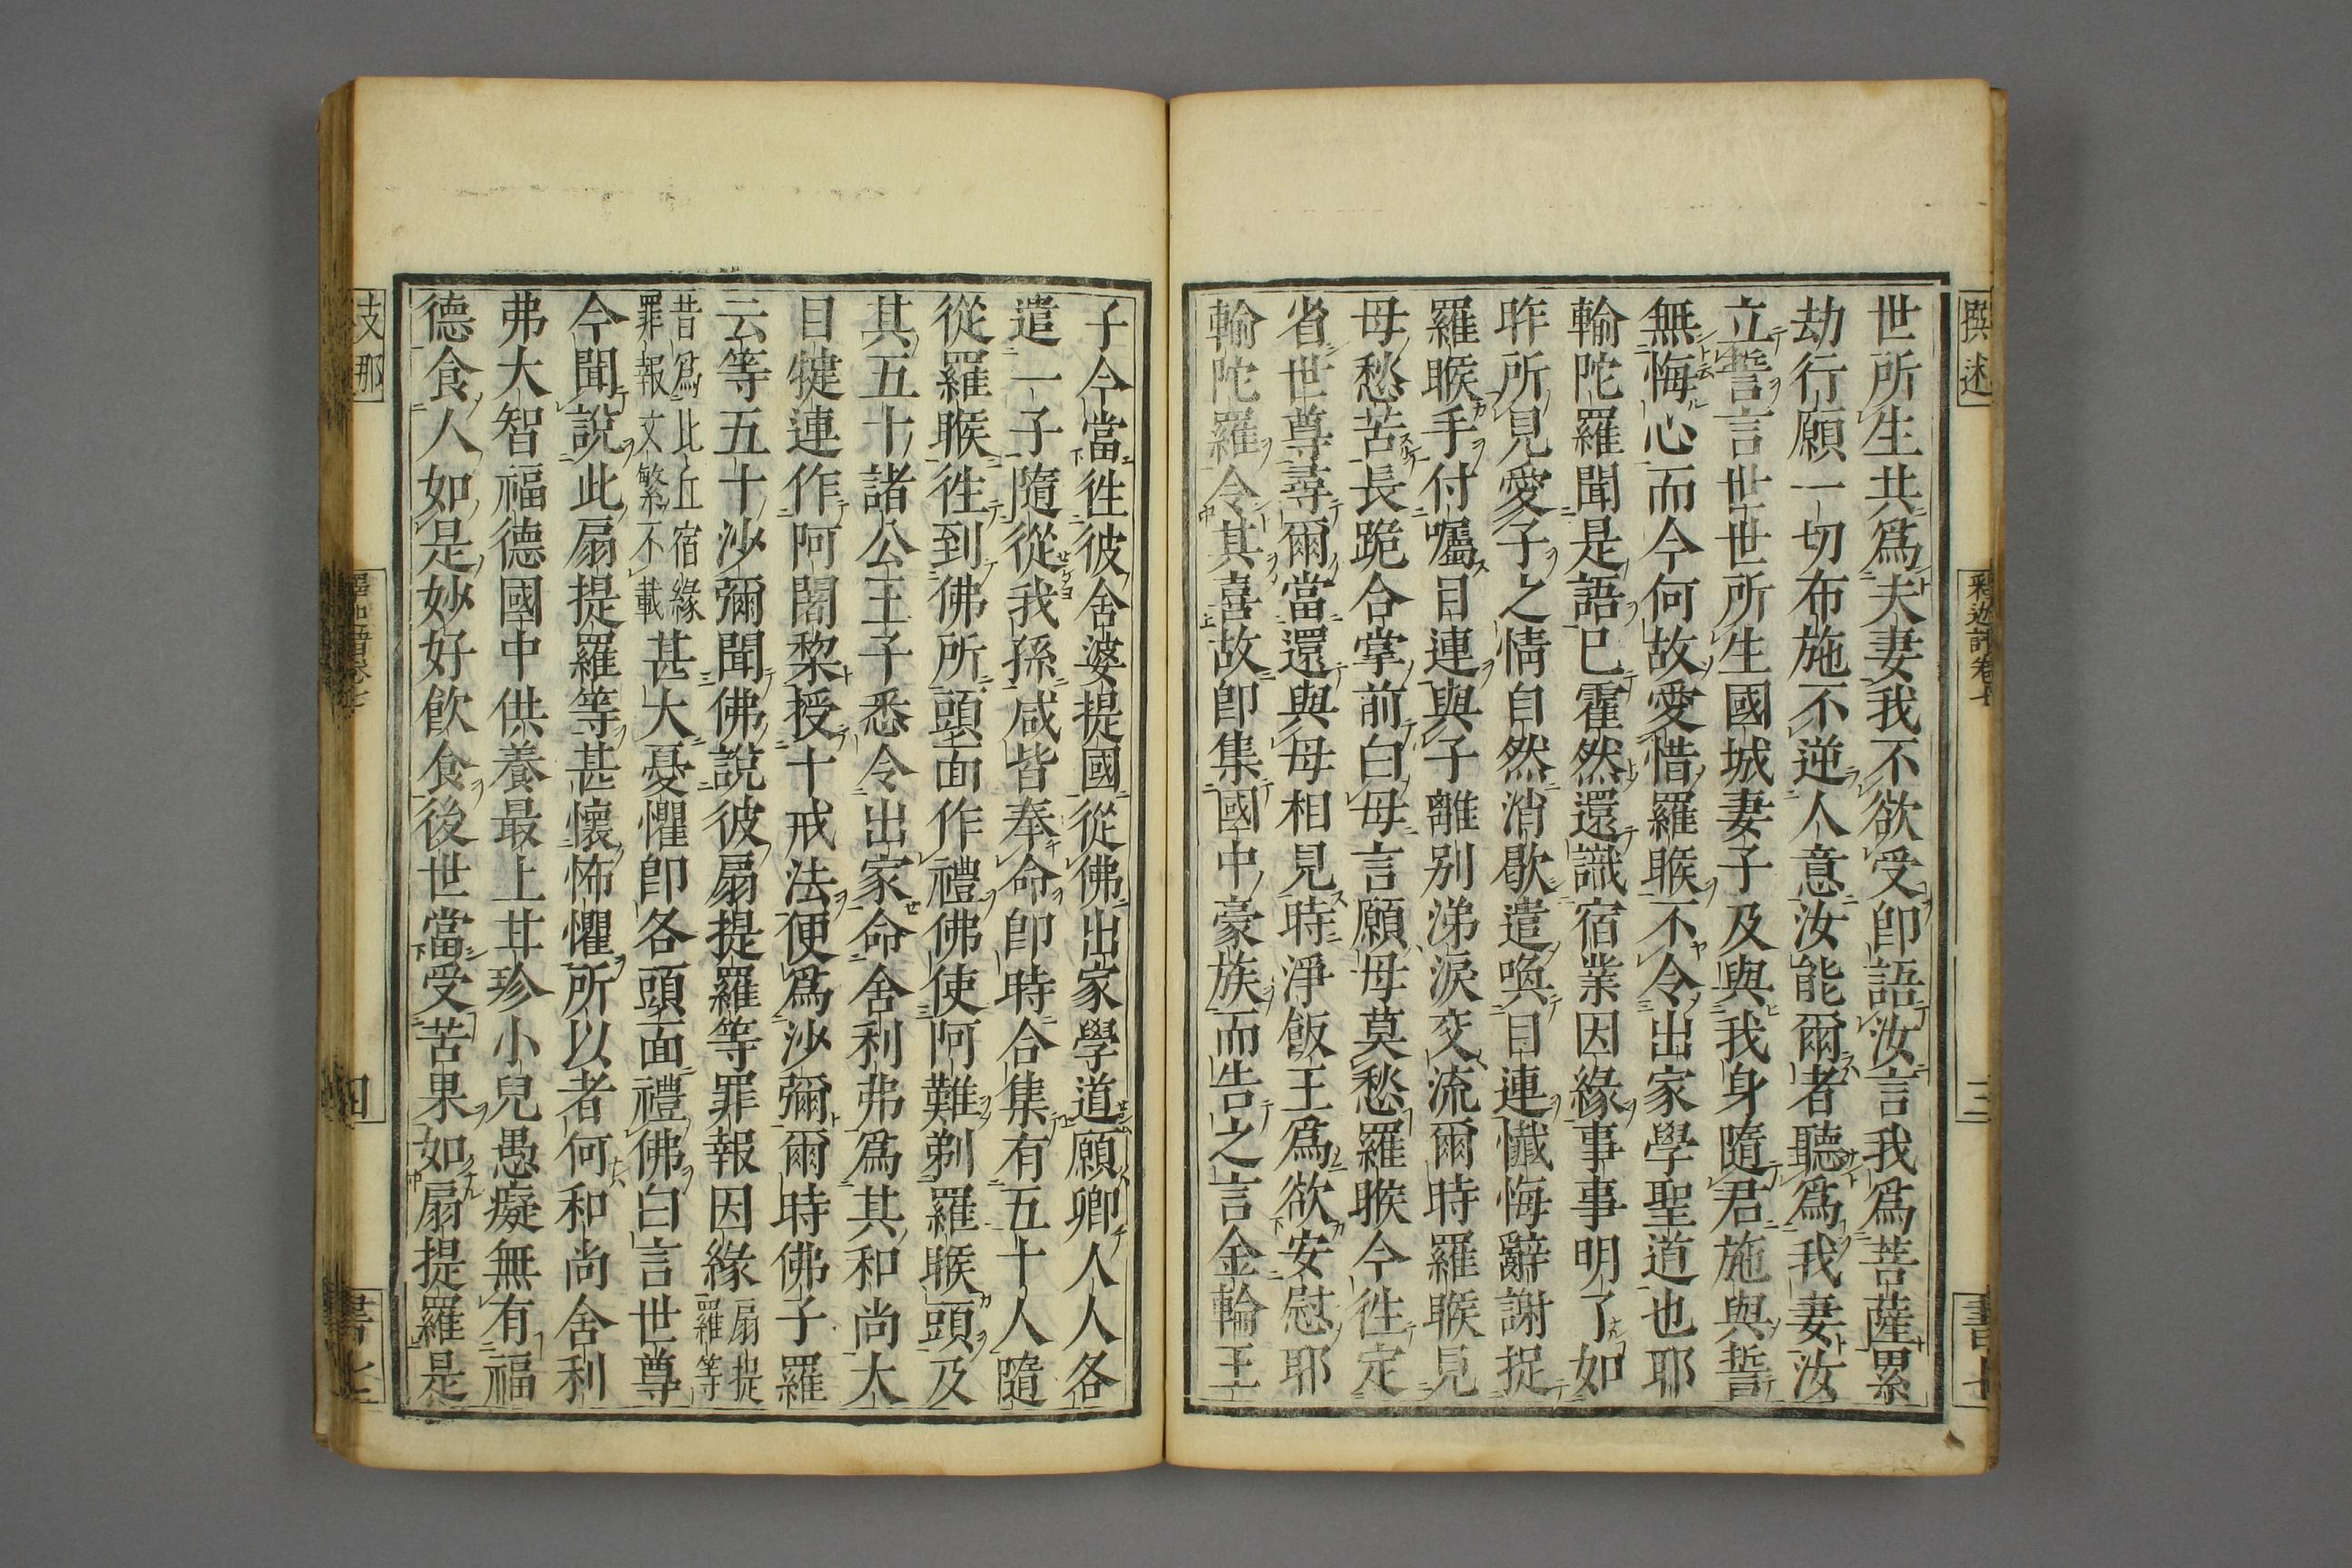 撰述
釋迦譜卷七
三
書七
世所生共爲夫妻我不欲受卽語汝言我爲菩薩累
劫行願一切布施不逆人意汝能爾者聽爲我妻汝
立誓言世世所生國城妻子及與我身隨君施與誓
無悔心而今何故愛惜羅睺不令出家學聖道也耶
輸陀羅聞是語已霍然還識宿業因緣事事明了如
昨所見愛子之情自然消歇遣喚目連懴悔辭謝捉
羅睺手付囑目連與子離別涕淚交流爾時羅睺見
母愁苦長跪合掌前白母言願母莫愁羅睺今徃定
省世尊尋爾當還與母相見時淨飯王爲欲安慰耶
輸陀羅令其喜故卽集國中豪族而告之言金輪王
子今當徃彼舍婆提國從佛出家學道願卿人人各
遣一子隨從我孫咸皆奉命卽時合集有五十人隨
從羅睺徃到佛所頭面作禮佛使阿難剃羅睺頭及
其五十諸公王子悉令出家命舍利弗爲其和尚大
目犍連作阿闍黎授十戒法便爲沙彌爾時佛子羅
云等五十沙彌聞佛說彼扇提羅等罪報因緣扇提
羅等
昔爲比丘宿緣
罪報文繁不載甚大憂懼卽各頭面禮佛白言世尊
今聞說此扇提羅等甚懷怖懼所以者何和尚舍利
弗大智福德國中供養最上甘珍小兒愚癡無有福
德食人如是妙好飮食後世當受苦果如扇提羅是
支那
四
書七